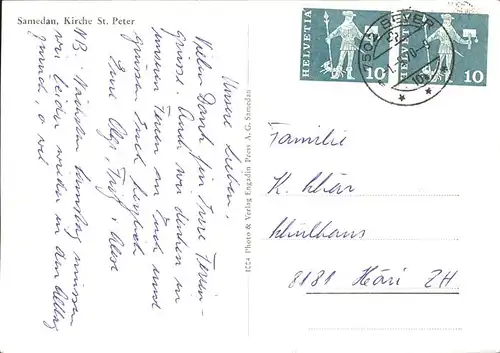 Samedan, Kirche St. Peter
Unsere Lieben,
Vielen Dank für Eure Ferien-
grüsse. Auch wir denken in
unseren Ferien an Euch und
grüssen Euch herzlich
Eure
NB. Nächsten Samstag müssen
wir leider wieder in den Alltag
zurück, o weh
1224 Photo & Verlag Engadin Press A.G. Samedan
HELVETIA
10
HELVETIA
10
BEVER
Familie
K.
Schulhaus
8181 Höri ZH